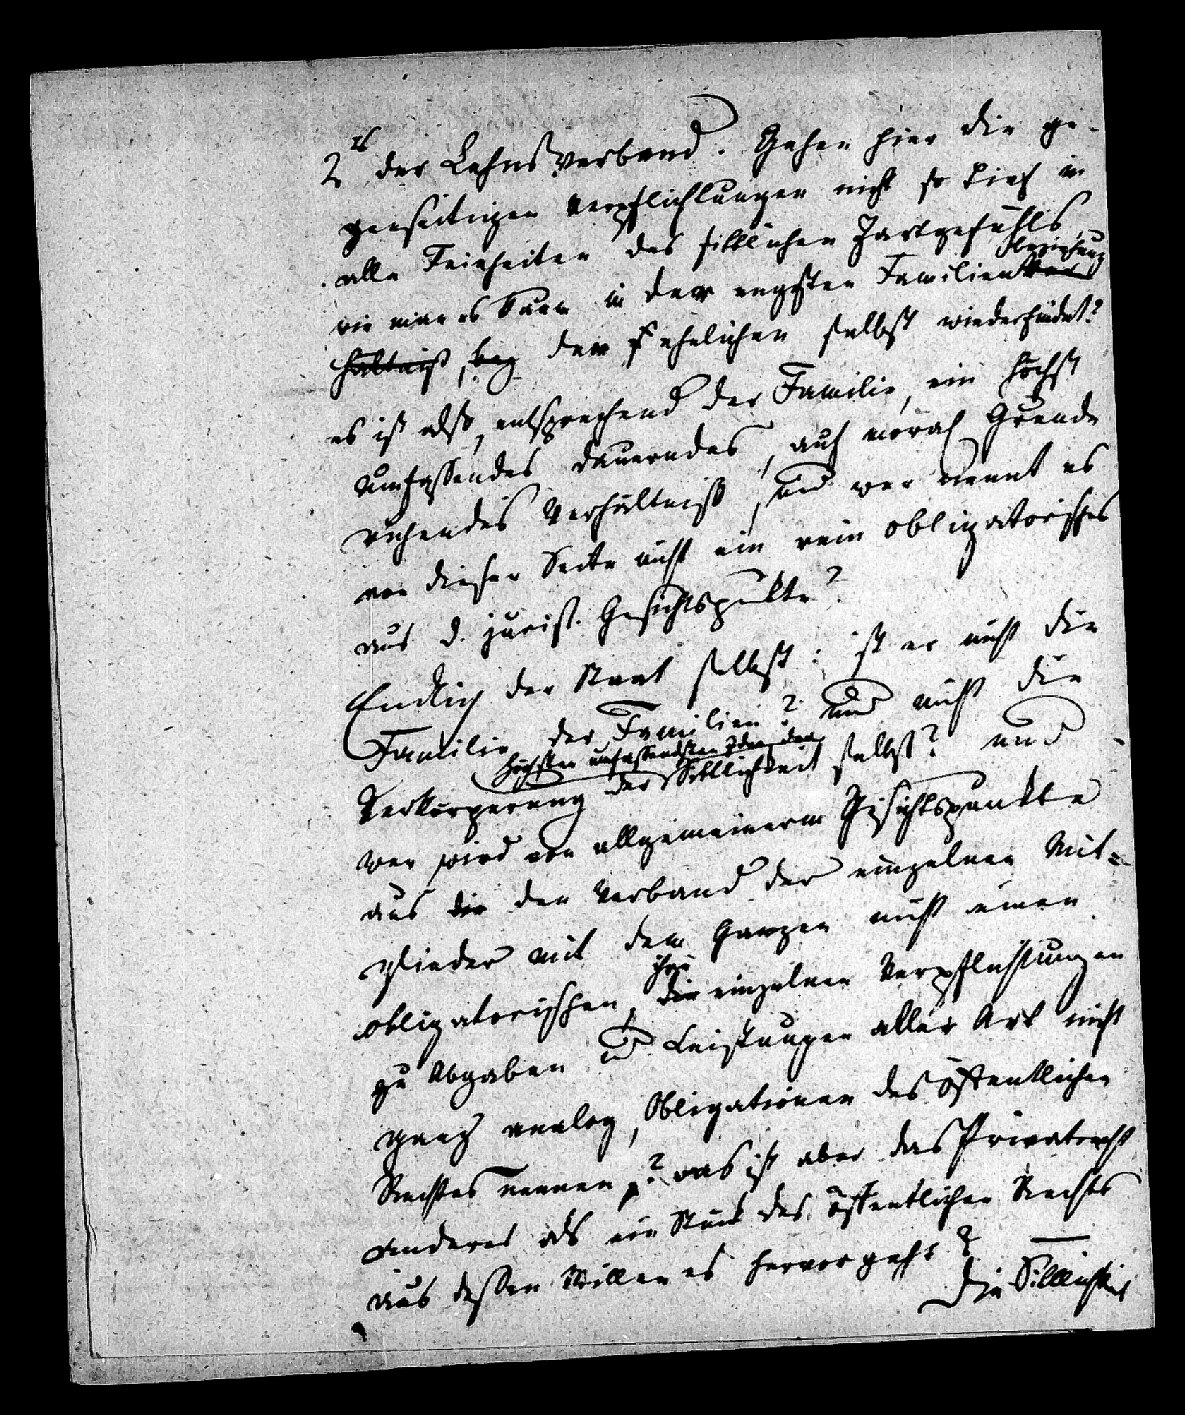 2ts der Lehnsverband. Gehen hier die ge-
genseitigen Verpflichtungen nicht so tief in
alle Feinheiten des sittlichen Zartgefühls,
beziehung
wie man es kaum in der engsten Familien ver
hältniß, der ehelichen selbst wiederfindet?
es ist also, entsprechend der Familie, ein höchst
umfassendes dauerndes, auf moral Grunde
ruhendes Verhältniß, und wer nennt es
von dieser Seite nicht ein rein obligatorisches
aus d. jurist. Gesichtspukte?
Endlich der Staat selbst: ist er nicht die
Familie der Familien? und nicht die
höchsten umfassendsten Idee der
Verkörperung der Sittlichkeit selbst? und
wer wird von allgemeinerm Gesichtspunkte
aus die den Verband der einzelnen Mit-
glieder mit dem Ganzen nicht einen
ihre
obligatorischen, die einzelnen Verpflichtungen
zu Abgaben u Leistungen aller Art nicht
ganz analog, Obligationen des öffentlichen
Rechtes nennen? was ist aber das Privatrecht
anderes als ein Stück des öffentlichen Rechts
aus dessen Willen es hervorgeht?
Die Sittlichkeit